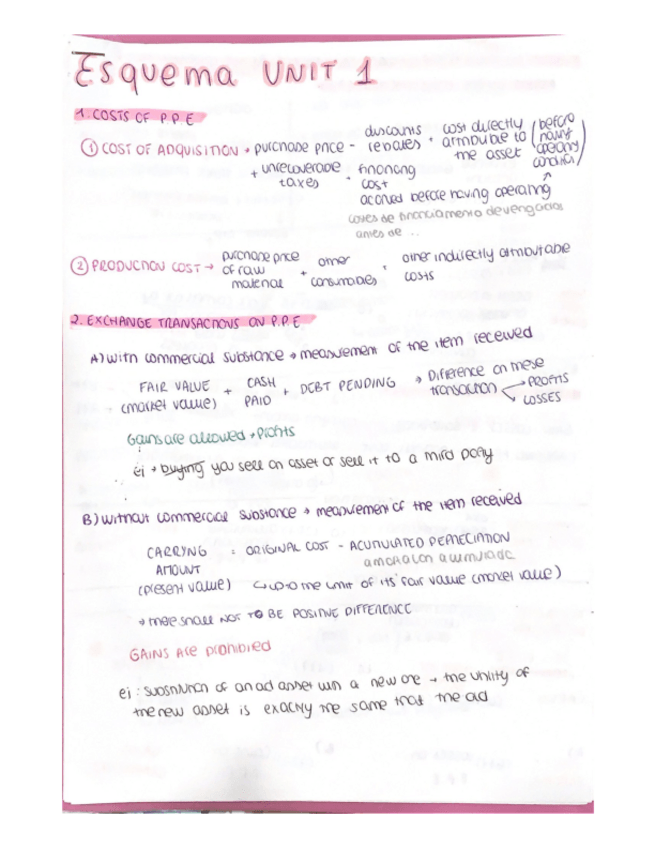 Esquema UNIT 1
1. COSTS OF P.P.E
① COST OF ADQUISITION → purchase price - discounts rebates + cost directly attributable to the asset (before having operating condition)
+ unrecoverable taxes + financing cost
accrued before having operating
costes de financiamiento devengados
antes de ...
② PRODUCTION COST → purchase price of raw material + other consumables + other indirectly attributable costs
2. EXCHANGE TRANSACTIONS ON P.P.E
A) with commercial substance → measurement of the item received
FAIR VALUE (market value) + CASH PAID + DEBT PENDING → Difference on these transaction → PROFITS
↘ LOSSES
Gains are allowed → profits
ej → buying you sell an asset or sell it to a third party
B) without commercial substance → measurement of the item received
CARRYNG AMOUNT (present value) = ORIGINAL COST - ACUMULATED DEPRECIATION
amortización acumulada
↳ up to the limit of its fair value (market value)
→ there shall NOT TO BE POSITIVE DIFFERENCE
GAINS are prohibied
ej : substitution of an old asset with a new one → the utility of
the new asset is exactly the same that the old